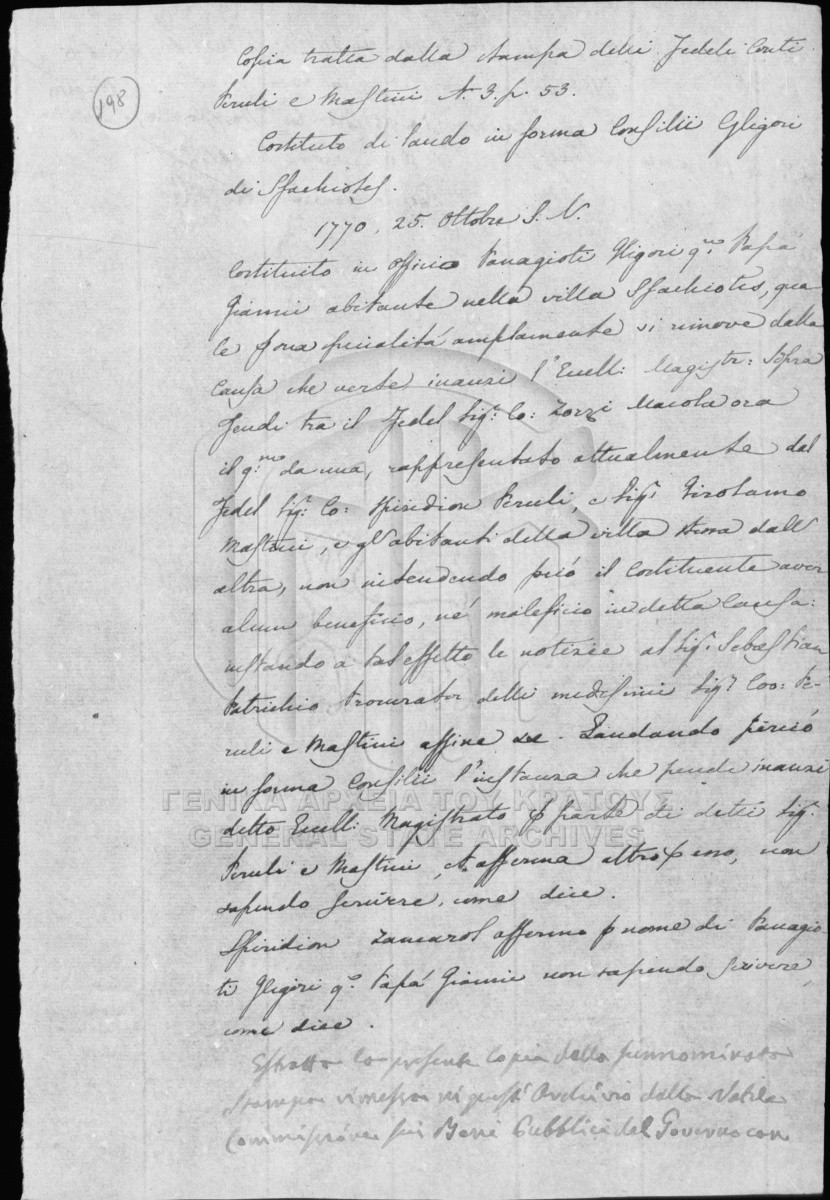 198
Copia tratta dalla stampa delli Fedeli Conti
Peruli e Mastini N. 3. p. 53.
Costituto di laudo in forma Consilii Gligori
di Sfachiotes.
1770, 25. Ottobre S. N.
Costituito in officio Panagioti Gligori q.m Papà
Gianni abitante nella villa Sfachiotes, qua
le amplamente si rimove dalla
causa che verte inanzi l'Eccell: Magistr: Sopra
Feudi tra il Fedel Sig.r Co: Zorzi Macola ora
il q.m da una, rappresentato attualmente dal
Fedel Sig.r Co: Spiridion Peruli, e Sig.r Girolamo
Mastini, e gl'abitanti della villa stessa dall'
altra, non intendendo però il Costituente aver
alcun beneficio, né maleficio in detta Causa:
instando a tal effetto le notizie al Sig.r Sebastian
Patrichio Procurator delli medesimi Sig.i Coo: Pe-
ruli e Mastini affine &c. Laudando perciò
in forma Consilii l'instanza che pende inanzi
detto Eccell: Magistrato p parte di detti Sig.i
Peruli e Mastini, afferma altro p esso, non
sapendo scrivere, come dice.
Spiridion Zancarol affermo p nome di Panagio-
ti Gligori q.m Papà Gianni non sapendo scrivere,
come dice.
Estratta la presente Copia dalla sunnominata
Stampa rimessa in questi Archivio dalla Nobile
Commissione sui Beni Pubblici del Governo con
ΓΕΝΙΚΑ ΑΡΧΕΙΑ ΤΟΥ ΚΡΑΤΟΥΣ
GENERAL STATE ARCHIVES